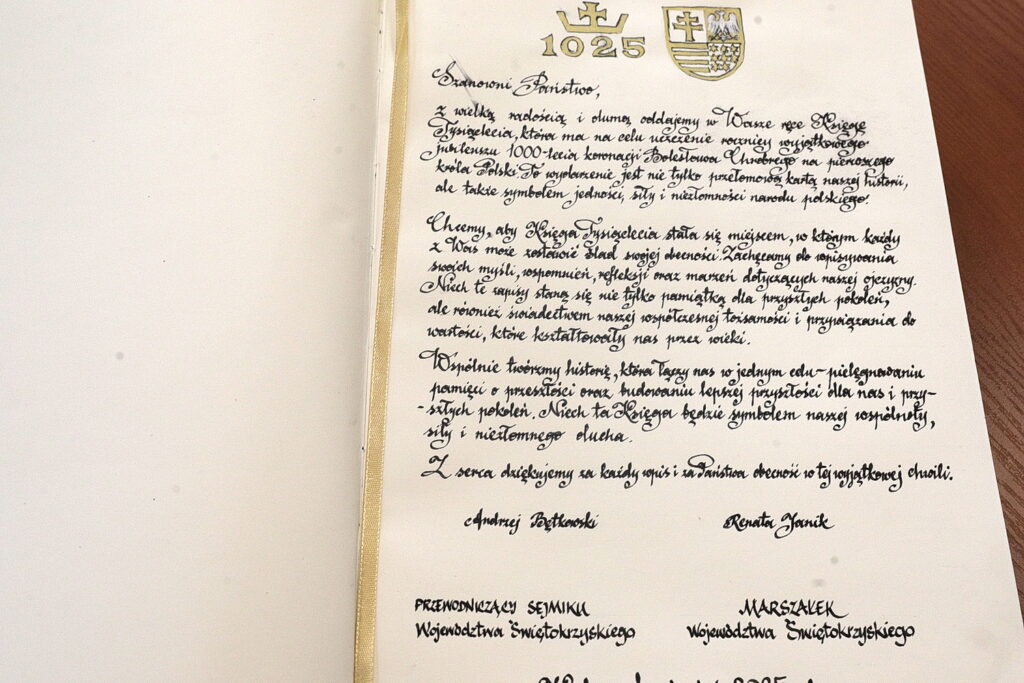 1025
Szanowni Państwo,
z wielką radością i dumą oddajemy w Wasze ręce Księgę
Tysiąclecia, która ma na celu uczczenie rocznicy wyjątkowego
jubileuszu 1000-lecia koronacji Bolesława Chrobrego na pierwszego
króla Polski. To wydarzenie jest nie tylko przełomową kartą naszej historii,
ale także symbolem jedności, siły i niezłomności narodu polskiego.
Chcemy, aby Księga Tysiąclecia stała się miejscem, w którym każdy
z Was może zostawić ślad swojej obecności. Zachęcamy do wpisywania
swoich myśli, wspomnień, refleksji oraz marzeń dotyczących naszej ojczyzny.
Niech te zapisy staną się nie tylko pamiątką dla przyszłych pokoleń,
ale również świadectwem naszej współczesnej tożsamości i przywiązania do
wartości, które kształtowały nas przez wieki.
Wspólnie twórzmy historię, która łączy nas w jednym celu - pielęgnowaniu
pamięci o przeszłości oraz budowaniu lepszej przyszłości dla nas i przy-
-szłych pokoleń. Niech ta Księga będzie symbolem naszej wspólnoty,
siły i niezłomnego ducha.
Z serca dziękujemy za każdy wpis i za Państwa obecność w tej wyjątkowej chwili.
Andrzej Bętkowski Renata Janik
PRZEWODNICZĄCY SEJMIKU MARSZAŁEK
Województwa Świętokrzyskiego Województwa Świętokrzyskiego